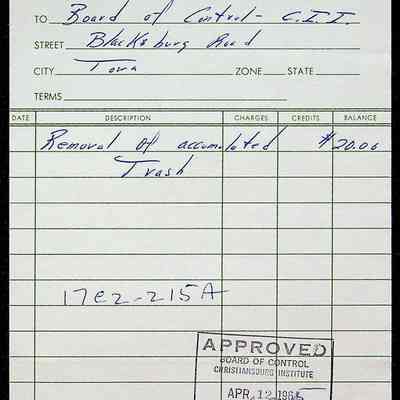 TO Board of Control - C.I.I.
STREET Blacksburg Road
CITY Town ZONE STATE
TERMS
DATE DESCRIPTION CHARGES CREDITS BALANCE
Removal of accumulated $20.00
Trash
17e2-215A
APPROVED
BOARD OF CONTROL
CHRISTIANSBURG INSTITUTE
APR 12 1965